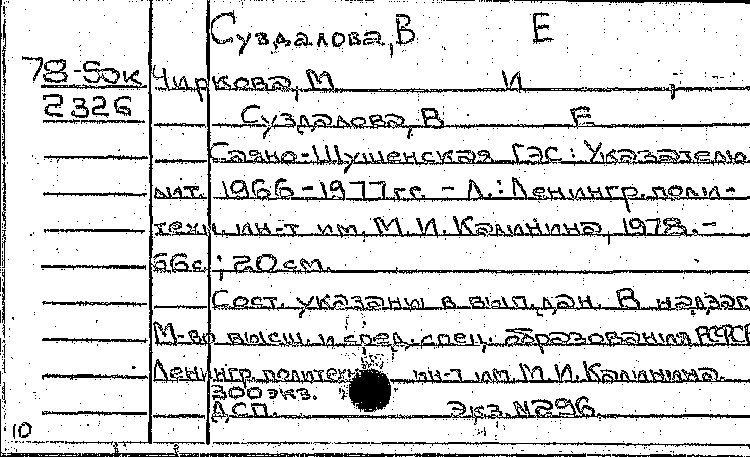 Суздалова, В Е
78-50к Чиркова, М И ,
2326 Суздалова, В Е
Саяно-Шушенская ГЭС: Указателю
лит. 1966-1977 гг. - Л.: Ленингр. поли-
техн. ин-т им. М. И. Калинина, 1978. -
66с.; 20см.
Сост. указаны в вып. дан. В надзаг.
М-во высш. и сред. спец. образования РСФСР
Ленингр. политехн ин-т им. М. И. Калинина.
300 экз.
ДСП. Экз. N296
10